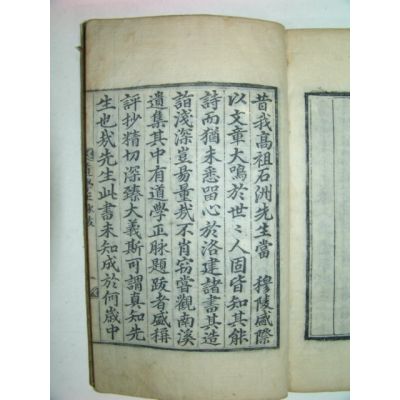 昔我高祖石洲先生當　穆陵盛際
以文章大鳴於世〻人固皆知其能
詩而猶未悉留心於洛建諸書其造
詣淺深豈易量哉不肖窃嘗觀南溪
遺集其中有道學正脉題跋者盛稱
評抄精切深臻大義斯可謂真知先
生也哉先生此書未知成於何歲中